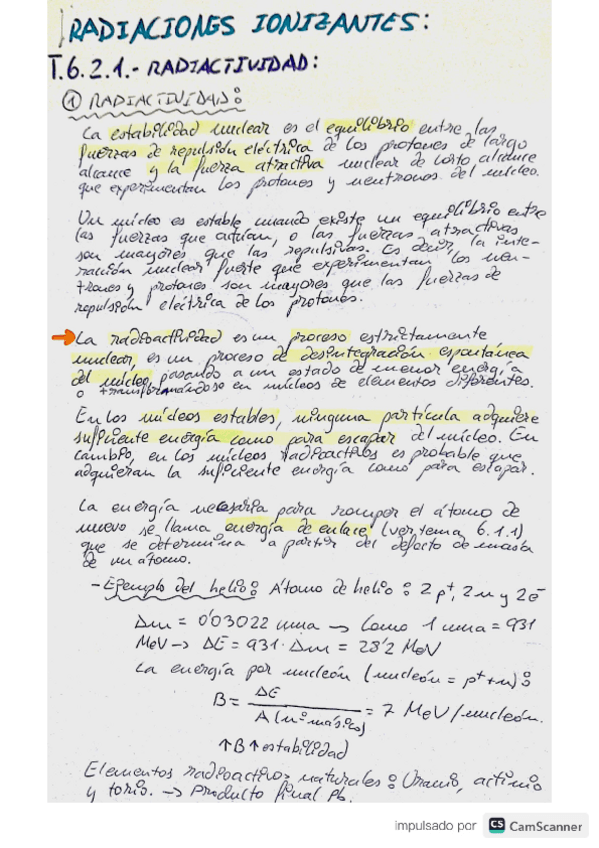 RADIACIONES IONIZANTES:
T.6.2.1.- RADIACTIVIDAD:
① RADIACTIVIDAD:
La estabilidad nuclear es el equilibrio entre las
fuerzas de repulsión eléctrica de los protones de largo
alcance y la fuerza atractiva nuclear de corto alcance
que experimentan los protones y neutrones del núcleo.
Un núcleo es estable cuando existe un equilibrio entre
las fuerzas que actúan, o las fuerzas atractivas
son mayores que las repulsivas. Es decir, la inte-
racción nuclear fuerte que experimentan los neu-
trones y protones son mayores que las fuerzas de
repulsión eléctrica de los protones.
La radioactividad es un proceso estrictamente
nuclear, es un proceso de desintegración espontánea
del núcleo, pasando a un estado de menor energía
o transformándose en núcleos de elementos diferentes.
En los núcleos estables, ninguna partícula adquiere
suficiente energía como para escapar del núcleo. En
cambio, en los núcleos radioactivos es probable que
adquieran la suficiente energía como para escapar.
La energía necesaria para romper el átomo de
nuevo se llama energía de enlace (ver tema 6.1.1)
que se determina a partir del defecto de masa
de un átomo.
- Ejemplo del helio: Átomo de helio: 2 p⁺, 2n y 2e⁻
Δm = 0'03022 uma → Como 1 uma = 931
MeV → ΔE = 931 · Δm = 28'2 MeV
La energía por nucleón (nucleón = p⁺+n):
B = ΔE / A (nº másico) = 7 MeV/nucleón.
↑B ↑estabilidad
Elementos radioactivos naturales: Uranio, actinio
y torio. → Producto final Pb.
Impulsado por CS CamScanner